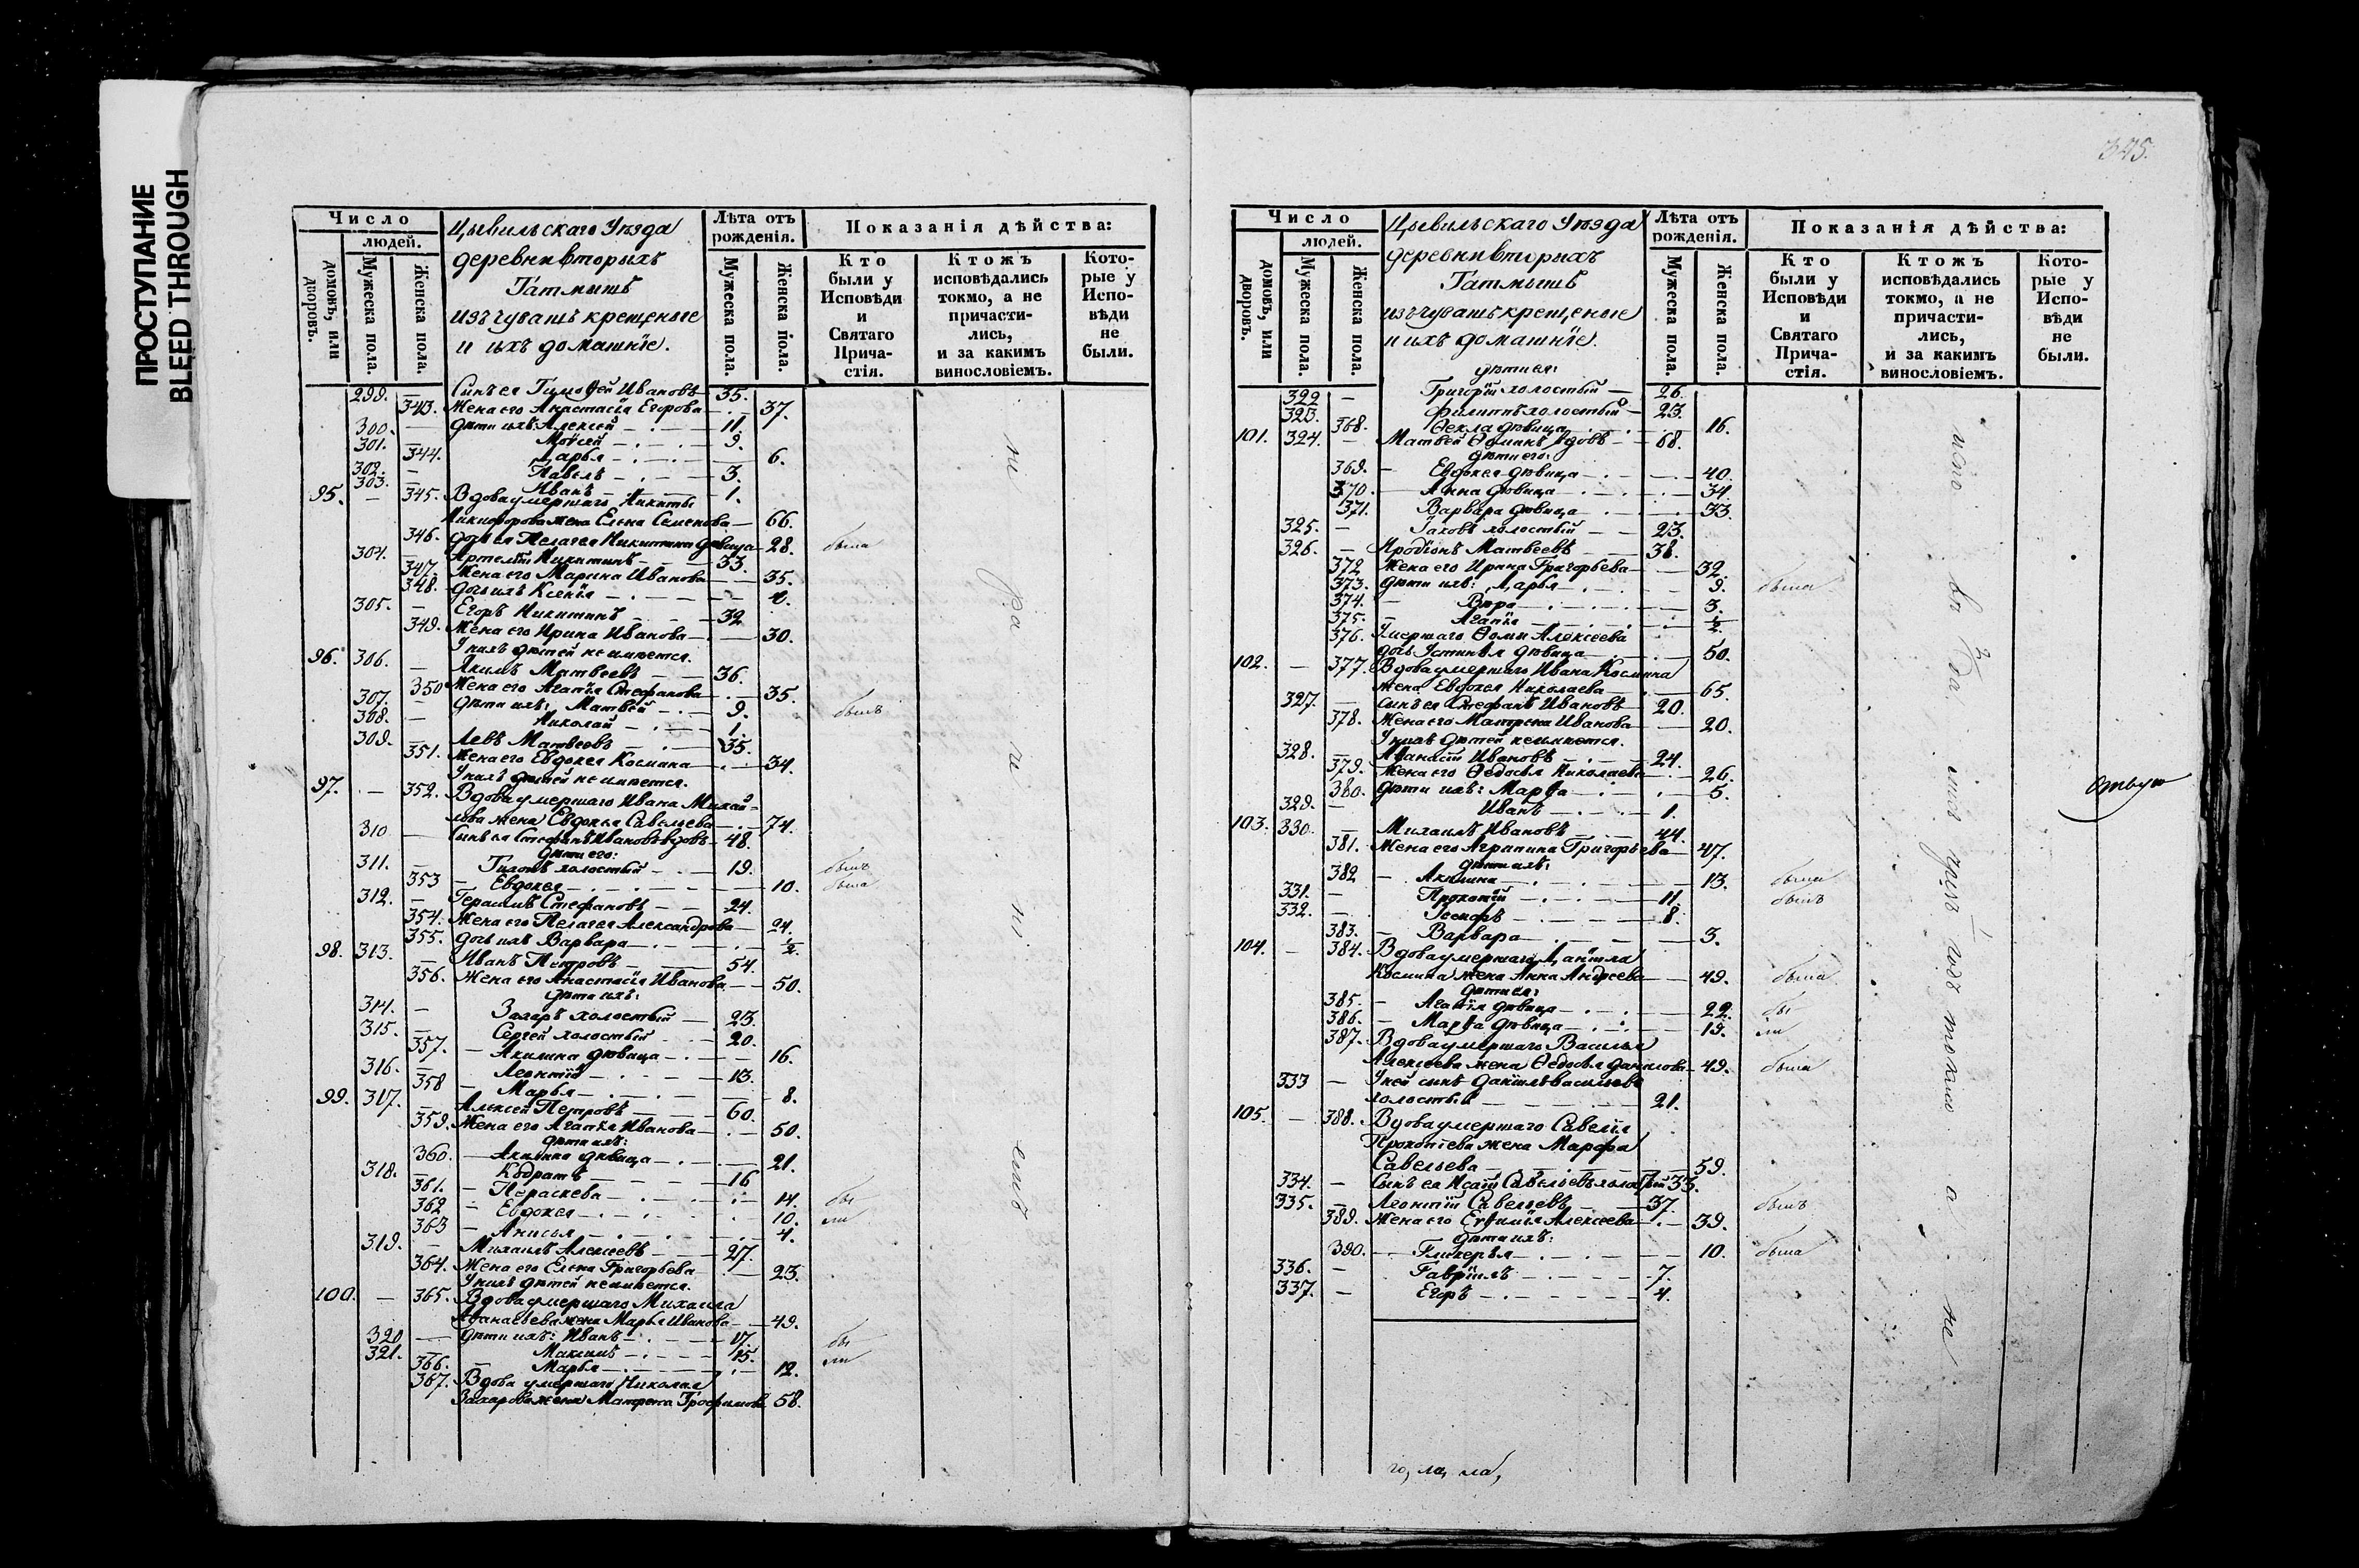 ПРОСТУПАНИЕ
BLEED THROUGH
Число
людей.
домовъ, или дворовъ.
Мужеска пола.
Женска пола.
Цывильскаго Уѣзда
деревни вторыхъ
Татмышъ
изъ чувашъ крещеные
и ихъ домашніе.
Лѣта отъ рожденія.
Мужеска пола.
Женска пола.
Показанія дѣйства:
Кто были у Исповѣди и Святаго Прича-стія.
Ктожъ исповѣдались токмо, а не причасти-лись, и за какимъ винословіемъ.
Кото-рые у Испо-вѣди не были.
299. — Сынъ ея Тимоѳей Ивановъ — 35.
343. Жена его Анастасія Егорова — 37.
300. — Дѣти ихъ: Алексей — 11.
301. Моѵсей — 9.
344. Дарья — 6.
302. — Павелъ — 3.
303. — Иванъ — 1.
95. — 345. Вдова умершаго Никиты
Никифорова жена Елена Семенова — 66.
346. Дочь ея Пелагея Никитина дѣвица — 28. была
304. — Артемій Никитинъ — 33.
347. Жена его Марина Иванова — 35.
348. Дочь ихъ Ксенія —
305. — Егоръ Никитинъ — 32
349. Жена его Ирина Иванова — 30.
У нихъ дѣтей не имѣется.
96. 306. — Якимъ Матвеевъ — 36.
350 Жена его Агапія Стефанова — 35.
307. — Дѣти ихъ: Матвей — 9. былъ
308. — Николай — 1.
309. — Левъ Матвеевъ — 35.
351. Жена его Евдокея Космина — 34.
У нихъ дѣтей не имѣется.
97. — 352. Вдова умершаго Ивана Михай-
лова жена Евдокея Савельева — 74.
310 — Сынъ ея Стефанъ Ивановъ вдовъ — 48.
Дѣти его:
311. — холостый — 19. былъ
353 — Евдокея — 10. была
312. — Герасимъ Стефановъ — 24.
354. Жена его Пелагея Александрова — 24.
355. Дочь ихъ Варвара — ½
98. 313. — Иванъ Петровъ — 54.
356. Жена его Анастасія Иванова — 50.
Дѣти ихъ:
314. — Захаръ холостый — 23.
315. — Сергей холостый — 20.
357. — Акилина дѣвица — 16.
316. — Леонтій — 13.
358 — Марья — 8.
99. 317. — Алексей Петровъ — 60.
359. Жена его Агапія Иванова — 50.
Дѣти ихъ:
360. — Акилина дѣвица — 21.
318. — Кодратъ — 16
361. — Параскева — 14. бы
362 — Евдокея — 10. ли
363 — Анисья — 4.
319. — Михаилъ Алексеевъ — 27.
364. Жена его Елена Григорьева — 23.
У нихъ дѣтей не имѣется.
100. — 365. Вдова умершаго Михаила
Аѳанасьева жена Марья Иванова — 49.
320 — Дѣти ихъ: Иванъ — 17. бы
321. — Максимъ — 15. ли
366. — Марья — 12.
367. Вдова умершаго Николая
Захарова жена Матрена Трофимова 58.
345.
Число
людей.
домовъ, или дворовъ.
Мужеска пола.
Женска пола.
Цывильскаго Уѣзда
деревни вторыхъ
Татмышъ
изъ чувашъ крещеные
и ихъ домашніе.
Лѣта отъ рожденія.
Мужеска пола.
Женска пола.
Показанія дѣйства:
Кто были у Исповѣди и Святаго Прича-стія.
Ктожъ исповѣдались токмо, а не причасти-лись, и за какимъ винословіемъ.
Кото-рые у Испо-вѣди не были.
дѣти ея:
322 — Григорій холостый — 26.
323. Филиппъ холостый — 23.
368. Ѳекла дѣвица — 16.
101. 324. — Матвей Ѳоминъ вдовъ — 68.
Дѣти его:
369. — Евдокея дѣвица — 40.
370. — Анна дѣвица — 34.
371. Варвара дѣвица — 33.
325. — Іаковъ холостый — 23.
326. — Иродіонъ Матвеевъ — 38.
372 Жена его Ирина Григорьева — 32.
373. Дѣти ихъ: Дарья — 9. была
374. — Вѣра — 3.
375. — Агапія — ½.
376. Умершаго Ѳомы Алексеева
дочь Устинья дѣвица — 50.
102. — 377. Вдова умершаго Ивана Космина
жена Евдокея Николаева — 65.
327. — Сынъ ея Стефанъ Ивановъ — 20.
378. Жена его Матрена Иванова — 20.
У нихъ дѣтей не имѣется.
328. — Аѳанасій Ивановъ — 24.
379. Жена его Ѳедосья Николаева — 26.
380. Дѣти ихъ: Марѳа — 5.
329. — Иванъ — 1.
103. 330. — Михаилъ Ивановъ — 44.
381. Жена его Агрипина Григорьева — 47.
Дѣти ихъ:
382 — Акилина — 13. была
331. — Прокопій — 11. былъ
332. — — 8.
383. — Варвара — 3.
104. — 384. Вдова умершаго Даніила
Космина жена Анна Андреева — 49. была
Дѣти ея:
385. — Агапія дѣвица — 22. бы
386. — Марѳа дѣвица — 19. ли
387. Вдова умершаго Василья
Алексеева жена Ѳедосья Данилова — 49. была
333 — У ней сынъ Даніилъ Васильевъ
холостый — 21.
105. — 388. Вдова умершаго Савелія
Прокопіева жена Марфа
Савельева — 59.
334. — Сынъ ея Исай Савельевъ холостый 33.
335. — Леонтій Савельевъ — 37. былъ
389. Жена его Евѳимія Алексеева — 39.
Дѣти ихъ:
390. — Гликерія — 10. была
336. — Гавріилъ — 7.
337. — Егоръ — 4.